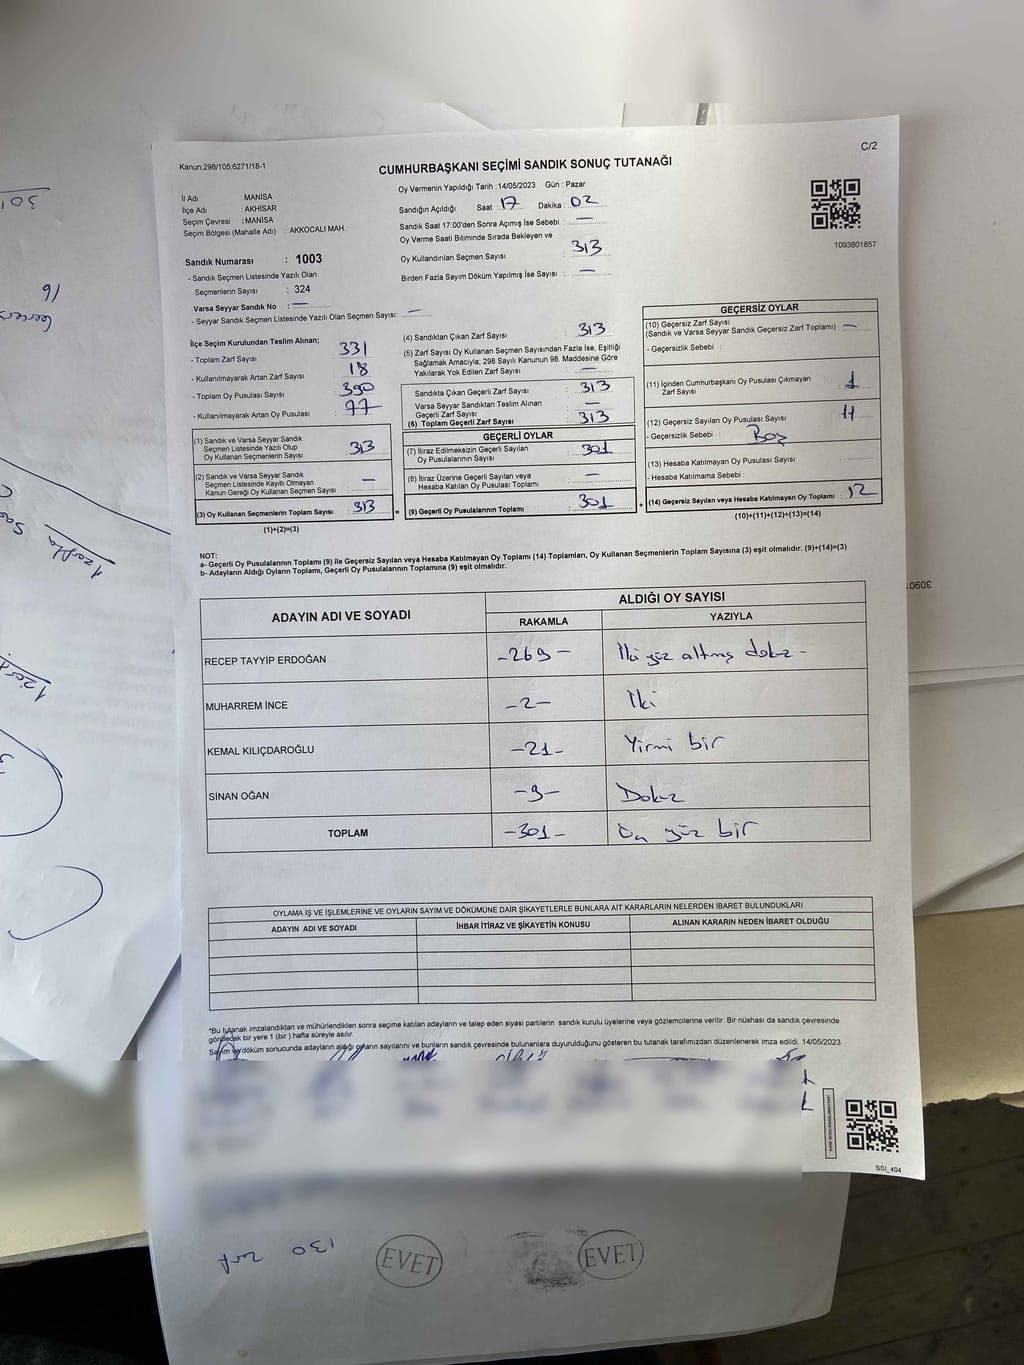 Kanun:298/105,6271/18-1
C/2
CUMHURBAŞKANI SEÇİMİ SANDIK SONUÇ TUTANAĞI
İl Adı : MANİSA
İlçe Adı : AKHİSAR
Seçim Çevresi : MANİSA
Seçim Bölgesi (Mahalle Adı) : AKKOCALI MAH.
Sandık Numarası : 1003
- Sandık Seçmen Listesinde Yazılı Olan
Seçmenlerin Sayısı : 324
Varsa Seyyar Sandık No : —
- Seyyar Sandık Seçmen Listesinde Yazılı Olan Seçmen Sayısı: —
Oy Vermenin Yapıldığı Tarih :14/05/2023 Gün : Pazar
Sandığın Açıldığı Saat : 17 Dakika : 02
Sandık Saat 17:00'den Sonra Açımış İse Sebebi : —
Oy Verme Saati Bitiminde Sırada Bekleyen ve
Oy Kullandırılan Seçmen Sayısı : 313
Birden Fazla Sayım Döküm Yapılmış İse Sayısı : —
1093801857
İlçe Seçim Kurulundan Teslim Alınan;
- Toplam Zarf Sayısı : 331
- Kullanılmayarak Artan Zarf Sayısı : 18
- Toplam Oy Pusulası Sayısı : 390
- Kullanılmayarak Artan Oy Pusulası : 77
(1) Sandık ve Varsa Seyyar Sandık
Seçmen Listesinde Yazılı Olup
Oy Kullanan Seçmenlerin Sayısı : 313
(2) Sandık ve Varsa Seyyar Sandık
Seçmen Listesinde Kayıtlı Olmayan
Kanun Gereği Oy Kullanan Seçmen Sayısı : —
(3) Oy Kullanan Seçmenlerin Toplam Sayısı : 313
(1)+(2)=(3)
(4) Sandıktan Çıkan Zarf Sayısı : 313
(5) Zarf Sayısı Oy Kullanan Seçmen Sayısından Fazla İse, Eşitliği
Sağlamak Amacıyla; 298 Sayılı Kanunun 98. Maddesine Göre
Yakılarak Yok Edilen Zarf Sayısı : —
Sandıkta Çıkan Geçerli Zarf Sayısı : 313
Varsa Seyyar Sandıktan Teslim Alınan
Geçerli Zarf Sayısı : —
(6) Toplam Geçerli Zarf Sayısı : 313
GEÇERLİ OYLAR
(7) İtiraz Edilmeksizin Geçerli Sayılan
Oy Pusulalarının Sayısı : 301
(8) İtiraz Üzerine Geçerli Sayılan veya
Hesaba Katılan Oy Pusulası Toplamı : —
= (9) Geçerli Oy Pusulalarının Toplamı : 301
GEÇERSİZ OYLAR
(10) Geçersiz Zarf Sayısı
(Sandık ve Varsa Seyyar Sandık Geçersiz Zarf Toplamı) : —
- Geçersizlik Sebebi :
(11) İçinden Cumhurbaşkanı Oy Pusulası Çıkmayan
Zarf Sayısı : 1
(12) Geçersiz Sayılan Oy Pusulası Sayısı : 11
- Geçersizlik Sebebi : Boş
(13) Hesaba Katılmayan Oy Pusulası Sayısı :
- Hesaba Katılmama Sebebi :
+ (14) Geçersiz Sayılan veya Hesaba Katılmayan Oy Toplamı : 12
(10)+(11)+(12)+(13)=(14)
NOT:
a- Geçerli Oy Pusulalarının Toplamı (9) ile Geçersiz Sayılan veya Hesaba Katılmayan Oy Toplamı (14) Toplamları, Oy Kullanan Seçmenlerin Toplam Sayısına (3) eşit olmalıdır. (9)+(14)=(3)
b- Adayların Aldığı Oyların Toplamı, Geçerli Oy Pusulalarının Toplamına (9) eşit olmalıdır.
ADAYIN ADI VE SOYADI ALDIĞI OY SAYISI
RAKAMLA YAZIYLA
RECEP TAYYİP ERDOĞAN -269- İki yüz altmış dokuz -
MUHARREM İNCE -2- İki
KEMAL KILIÇDAROĞLU -21- Yirmi bir
SİNAN OĞAN -9- Dokuz
TOPLAM -301- Üç yüz bir
OYLAMA İŞ VE İŞLEMLERİNE VE OYLARIN SAYIM VE DÖKÜMÜNE DAİR ŞİKAYETLERLE BUNLARA AİT KARARLARIN NELERDEN İBARET BULUNDUKLARI
ADAYIN ADI VE SOYADI İHBAR İTİRAZ VE ŞİKAYETİN KONUSU ALINAN KARARIN NEDEN İBARET OLDUĞU
*Bu tutanak imzalandıktan ve mühürlendikten sonra seçime katılan adayların ve talep eden siyasi partilerin sandık kurulu üyelerine veya gözlemcilerine verilir. Bir nüshası da sandık çevresinde
görülecek bir yere 1 (bir ) hafta süreyle asılır.
Sayım ve döküm sonucunda adayların aldığı oyların sayılarını ve bunların sandık çevresinde bulunanlara duyurulduğunu gösteren bu tutanak tarafımızdan düzenlenerek imza edildi. 14/05/2023
SSI_404
130 zarf
EVET
EVET
301
16
1 zarfta